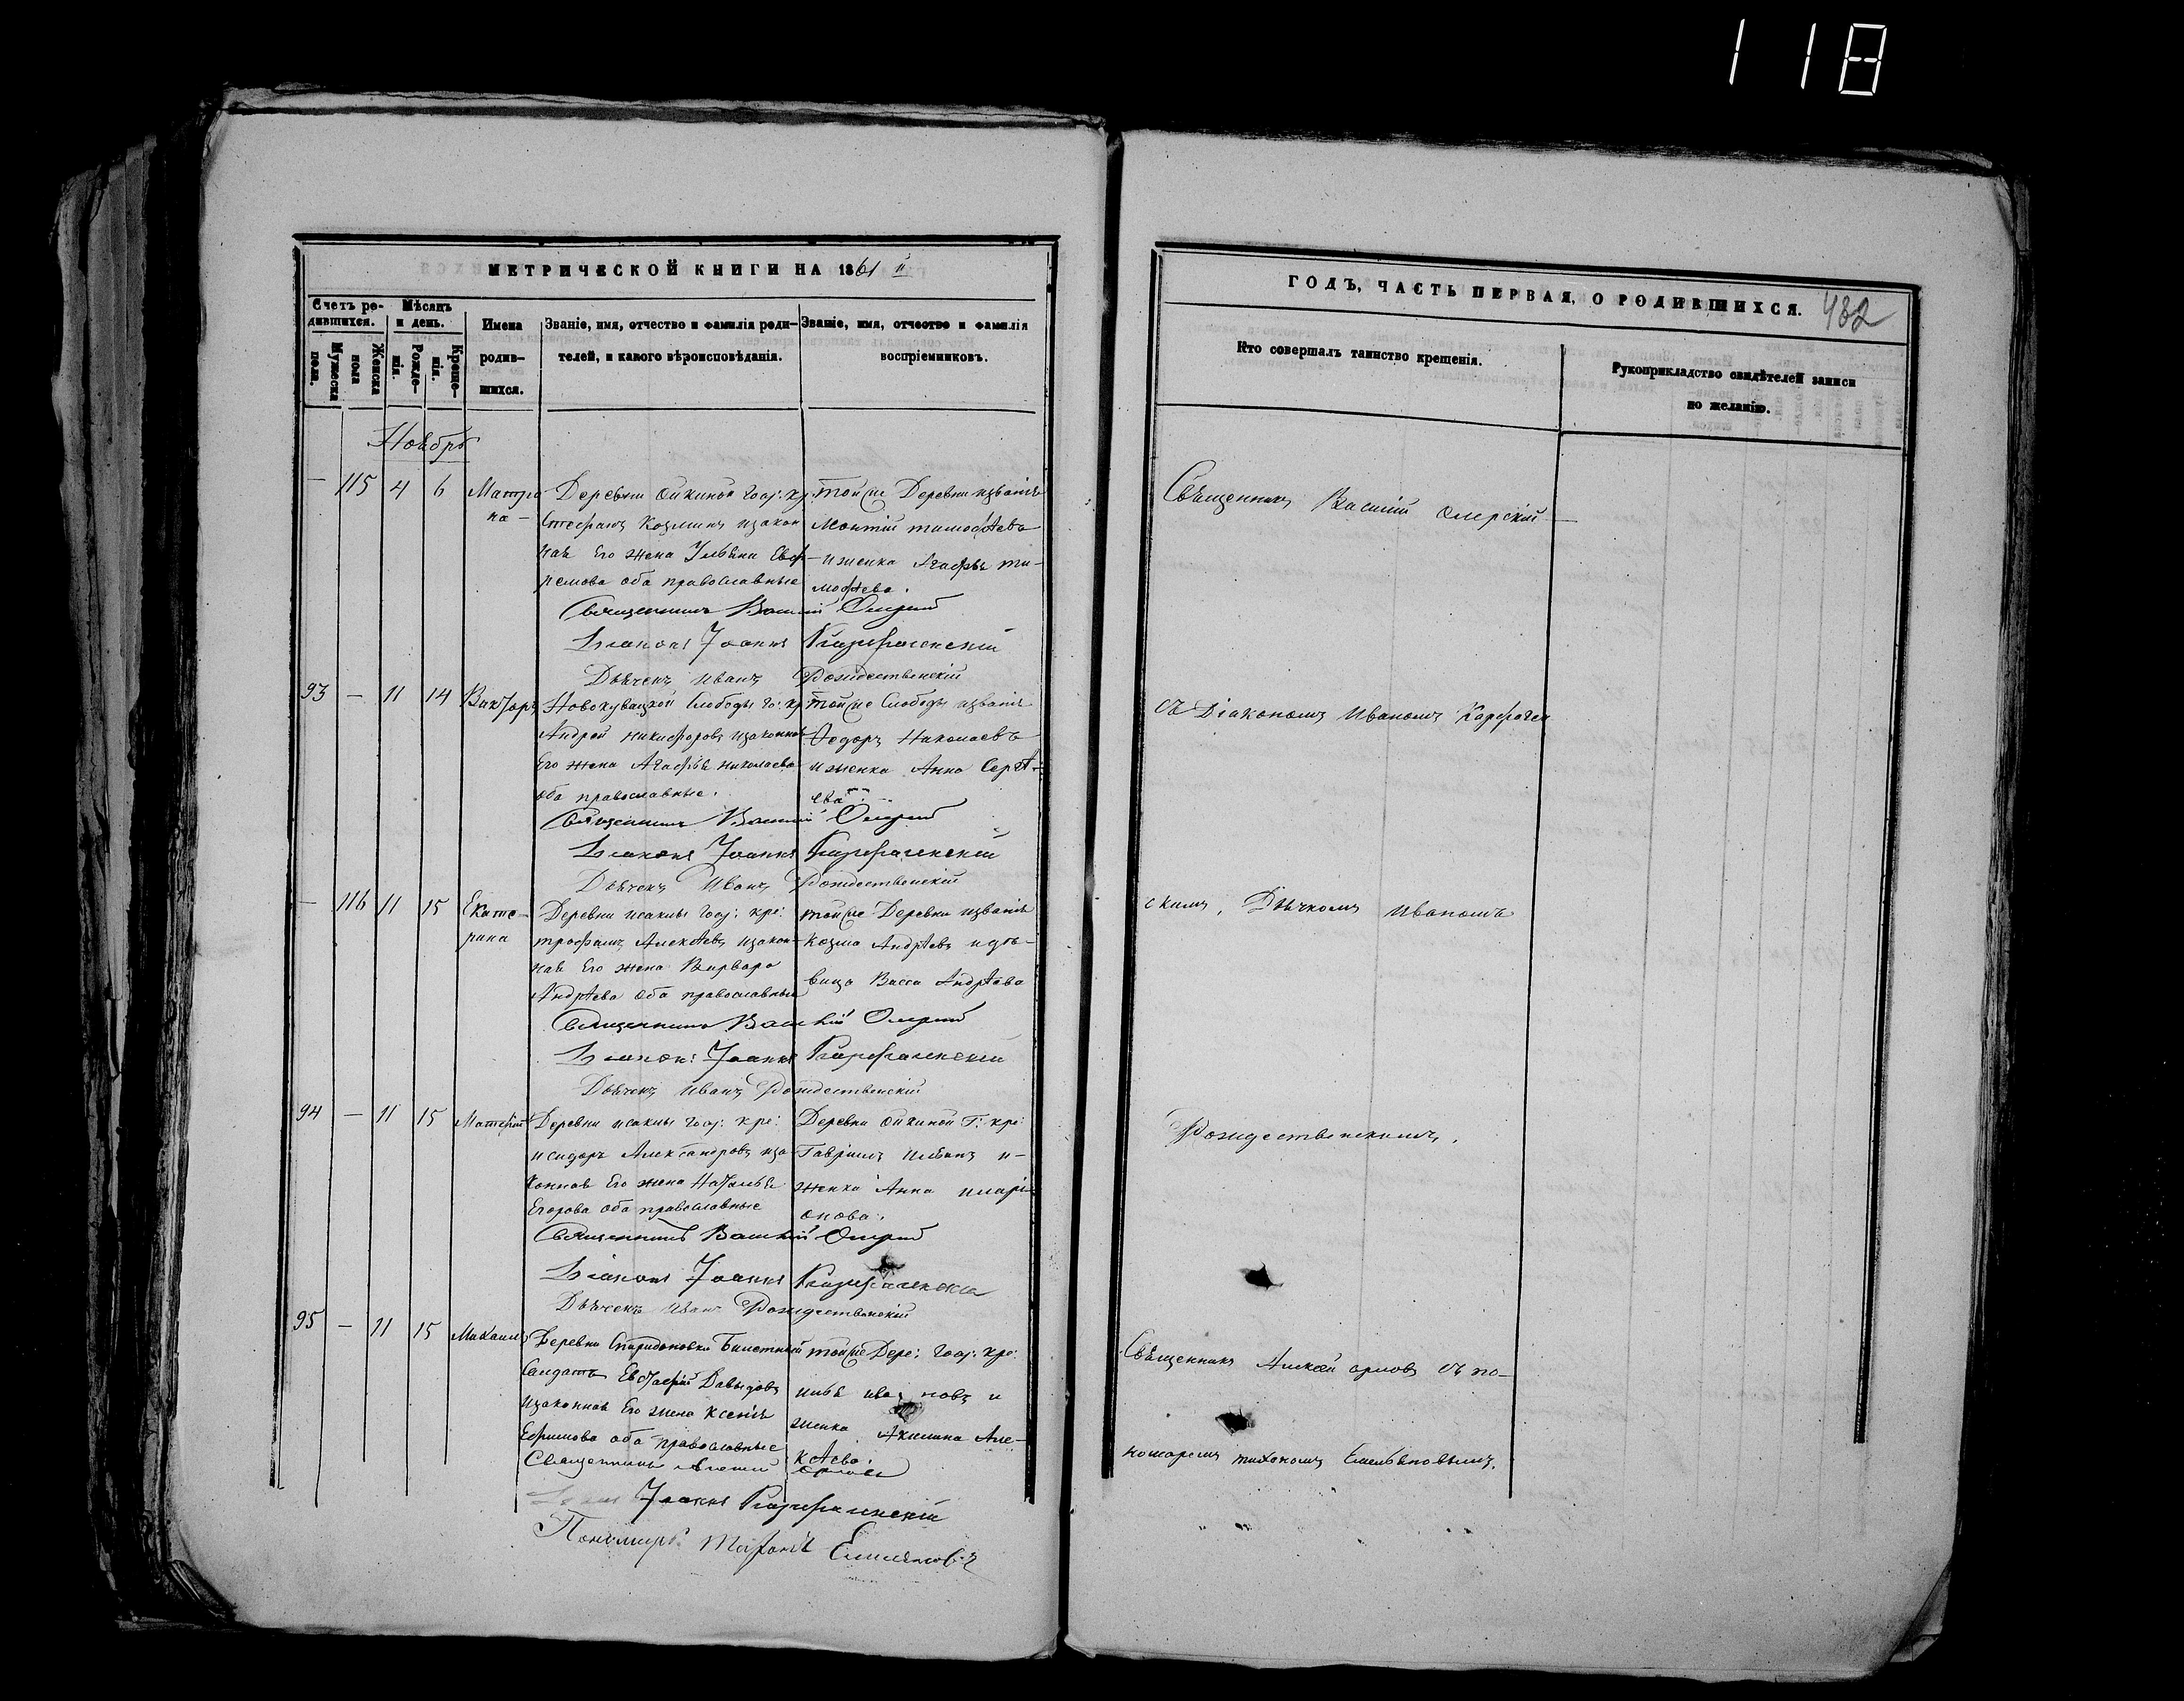 118
МЕТРИЧЕСКОЙ КНИГИ НА 1861 й
Счетъ ро-
дившихся.
Мѣсяцъ
и день.
Мужеска
пола.
Женска
пола
Рожде-
нія.
Креще-
нія.
Имена
родив-
шихся.
Званіе, имя, отчество и фамилія роди-
телей, и какого вѣроисповѣданія.
Званіе, имя, отчество и фамилія
воспріемниковъ.
Ноябрь
— 115 4 6 Матро
на —
Деревни Ойкиной гос: кр:
Стефанъ Козминъ изакон
ная Его жена Ульяна Евф
ремова оба православные
тойже Деревни изванія
Леонтій тимофѣевъ
и женка Агафья ти-
мофѣева.
Священникъ Василій Омерскій
Діаконъ Іоаннъ Карфагенскій
Дьячекъ Иванъ Рождественскій
93 — 11 14 Викторъ
Новокувацкой Слободы го: кр
Андрей никифоровъ изаконная
Его жена Агафья николаева
оба православные.
тойже Слободы изванія
Ѳедоръ Николаевъ
и женка Анна Сергѣ-
ева
Священникъ Василій Омерскій
Діаконъ Іоаннъ Карфагенскій
Дьячекъ Иванъ Рождественскій
— 116 11 15 Екате-
рина
Деревни исаклы гос: кре:
трофимъ Алексѣевъ изакон-
ная Его жена Варвара
Андрѣева оба православные
тойже Деревни изванія
Козма Андрѣевъ и дѣ-
вица Васса Андрѣева
Священникъ Василій Омерскій
Діаконъ Іоаннъ Карфагенскій
Дьячекъ Иванъ Рождественскій
94 — 11 15 Матфей
Деревни исаклы гос: кре:
исидоръ Александровъ иза
конная Его жена Наталья
Егорова оба православные
Деревни Ойкиной Г: кре:
Гавріилъ Ильинъ и-
женка Анна иларі
онова.
Священникъ Василій Омерскій
Діаконъ Іоаннъ Карфагенскій
Дьячекъ Иванъ Рождественскій
95 — 11 15 Михаилъ
Деревни Спиридоновки Билетный
Солдатъ Евстафій Давыдовъ
изаконная Его жена Ксенія
Ефимова оба православные
тойже Дере: гос: кре:
илья ива новъ и
женка Акилина Але-
ксѣева.
Священникъ Алексій Орловъ
Діаконъ Іоаннъ Карфагенскій
Пономарь Тихонъ Емельяновъ
ГОДЪ, ЧАСТЬ ПЕРВАЯ, О РОДИВШИХСЯ.
482
Кто совершалъ таинство крещенія.
Рукоприкладство свидѣтелей записи
по желанію.
Священникъ Василій Омерскій —
съ Діакономъ Иваномъ Карфаген
скимъ, Дьячкомъ Иваномъ
Рождественскимъ.
Священникъ Алексѣй орловъ съ по-
номаремъ тихономъ Емельяновымъ.